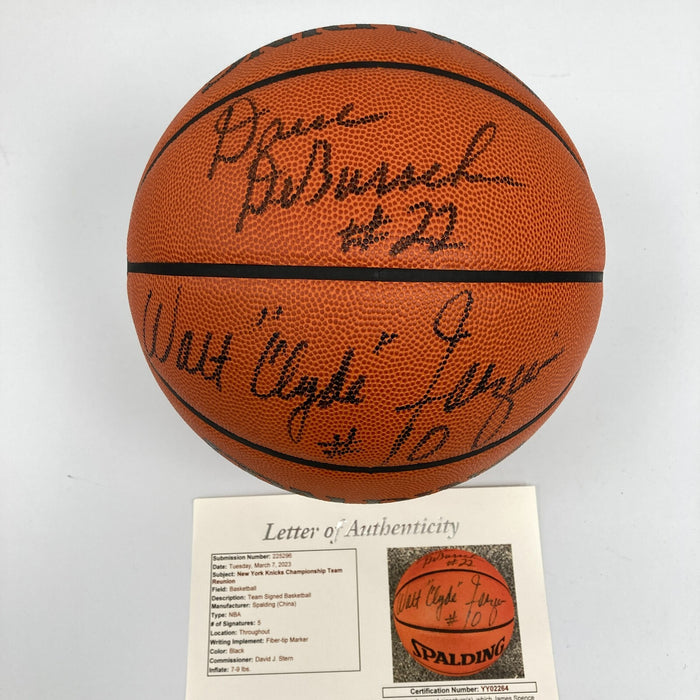 Dave
DeBusschere
#22
Walt "Clyde" Frazier
#10
Letter of Authenticity
Submission Number: 225296
Date: Tuesday, March 7, 2023
Subject: New York Knicks Championship Team
Reunion
Field: Basketball
Description: Team Signed Basketball
Manufacturer: Spalding (China)
Type: NBA
# of Signatures: 5
Location: Throughout
Writing Implement: Fiber-tip Marker
Color: Black
Commissioner: David J. Stern
Inflate: 7-9 lbs.
#22
Walt "Clyde" Frazier
#10
SPALDING
Certification Number: YY02264
which, James Spence